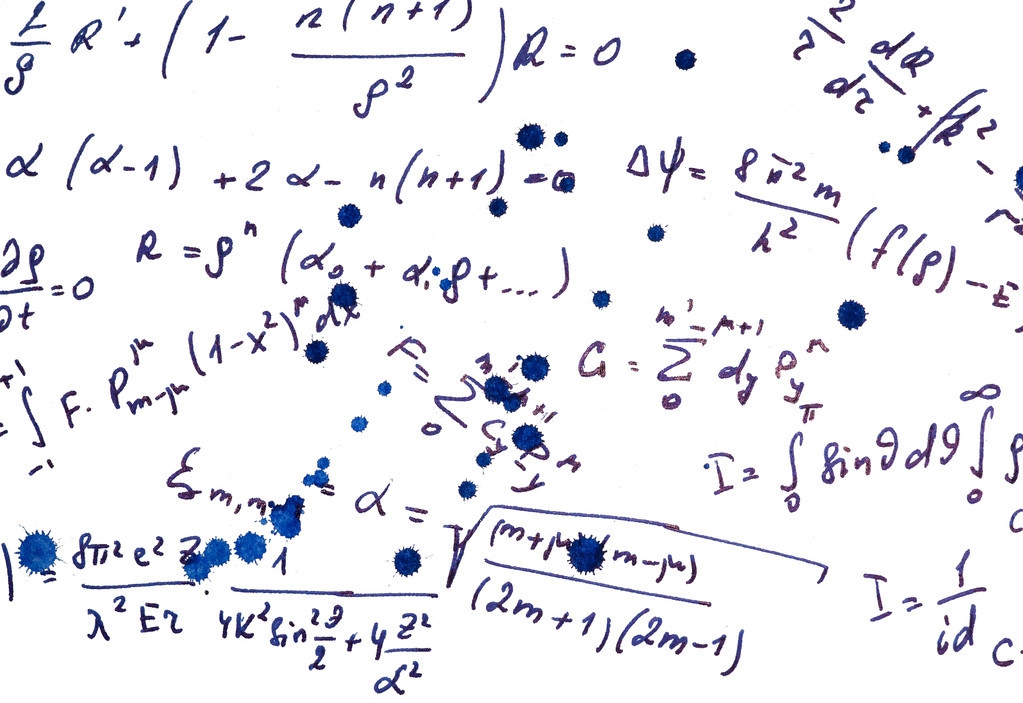 2/ρ R' + (1 - n(n+1)/ρ²) R = 0
2/τ dR/dτ + (k² -
α (α-1) + 2α - n(n+1) = 0
Δψ = 8π²m/h² (f(ρ) - E
∂ρ/∂t = 0
R = ρⁿ (α₀ + α₁ρ + ...)
= ∫₋₁⁺¹ F · P^μ_{m-μ} (1-x²)^μ dx
F = Σ₀
G = Σ₀^{m'-μ+1} d_y P_y^μ
I = ∫₀^π sin ϑ dϑ ∫₀^∞ ρ
ξ_{m,m} = α = √((m+μ)(m-μ)/((2m+1)(2m-1)))
| = 8π²e²Z/(λ²Eτ) · 1/(4K² sin² ϑ/2 + 4 Z²/α²)
I = 1/id
c